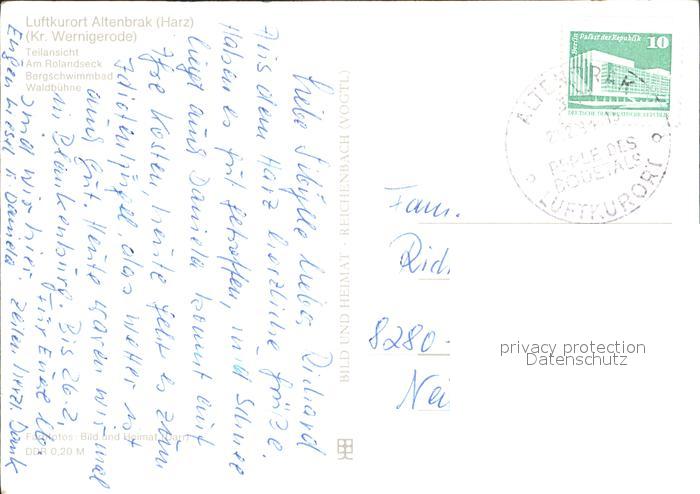 Luftkurort Altenbrak (Harz)
(Kr. Wernigerode)
Teilansicht
Am Rolandseck
Bergschwimmbad
Waldbühne
Liebe Sibylle lieber Richard
Aus dem Harz herzliche Grüße.
Haben es gut getroffen, und Schnee
liegt auch Daniela kommt auf
ihre Kosten, heute geht es zum
Idiotenhügel, das Wetter ist
auch gut. Heute waren wir mal
in Blankenburg. Bis 26.2.
sind wir hier. Für Eure lb.
Zeilen herzl. Dank
Eugen Liesel u. Daniela
Farbfotos: Bild und Heimat
DDR 0,20 M
BILD UND HEIMAT · REICHENBACH (VOGTL)
Berlin Palast der Republik
10
DEUTSCHE DEMOKRATISCHE REPUBLIK
ALTENBRAK
PERLE DES
BODETALS
LUFTKURORT
Fam.
8280
privacy protection
Datenschutz